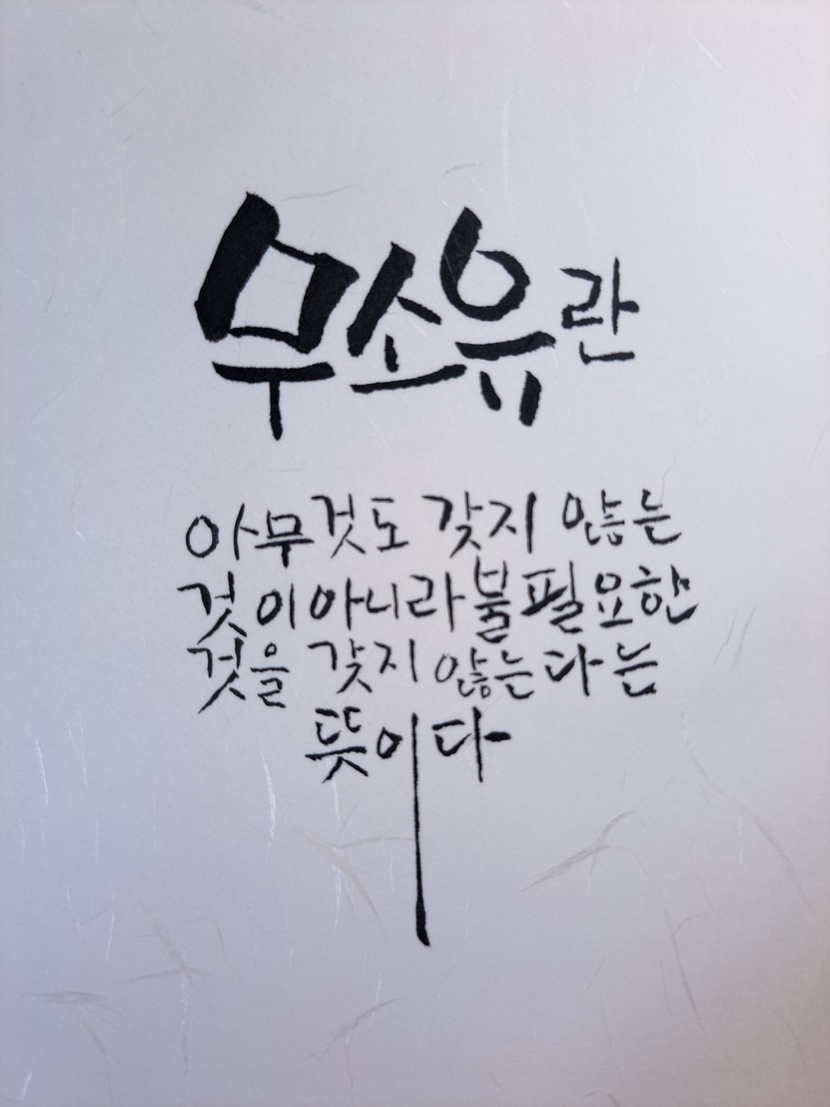 무소유란
아무것도 갖지 않는
것이 아니라 불필요한
것을 갖지 않는다는
뜻이다